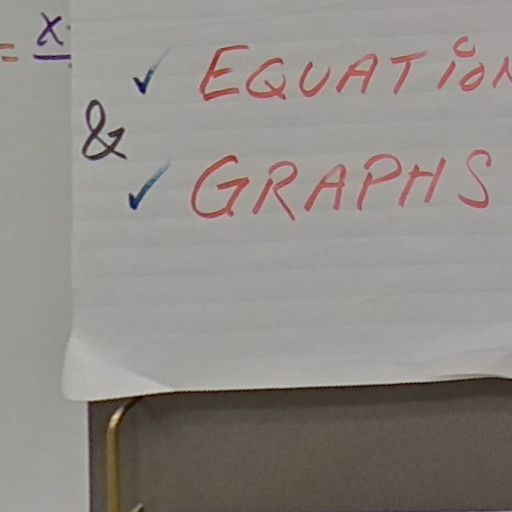 = x
✓ EQUATION
&
✓ GRAPHS